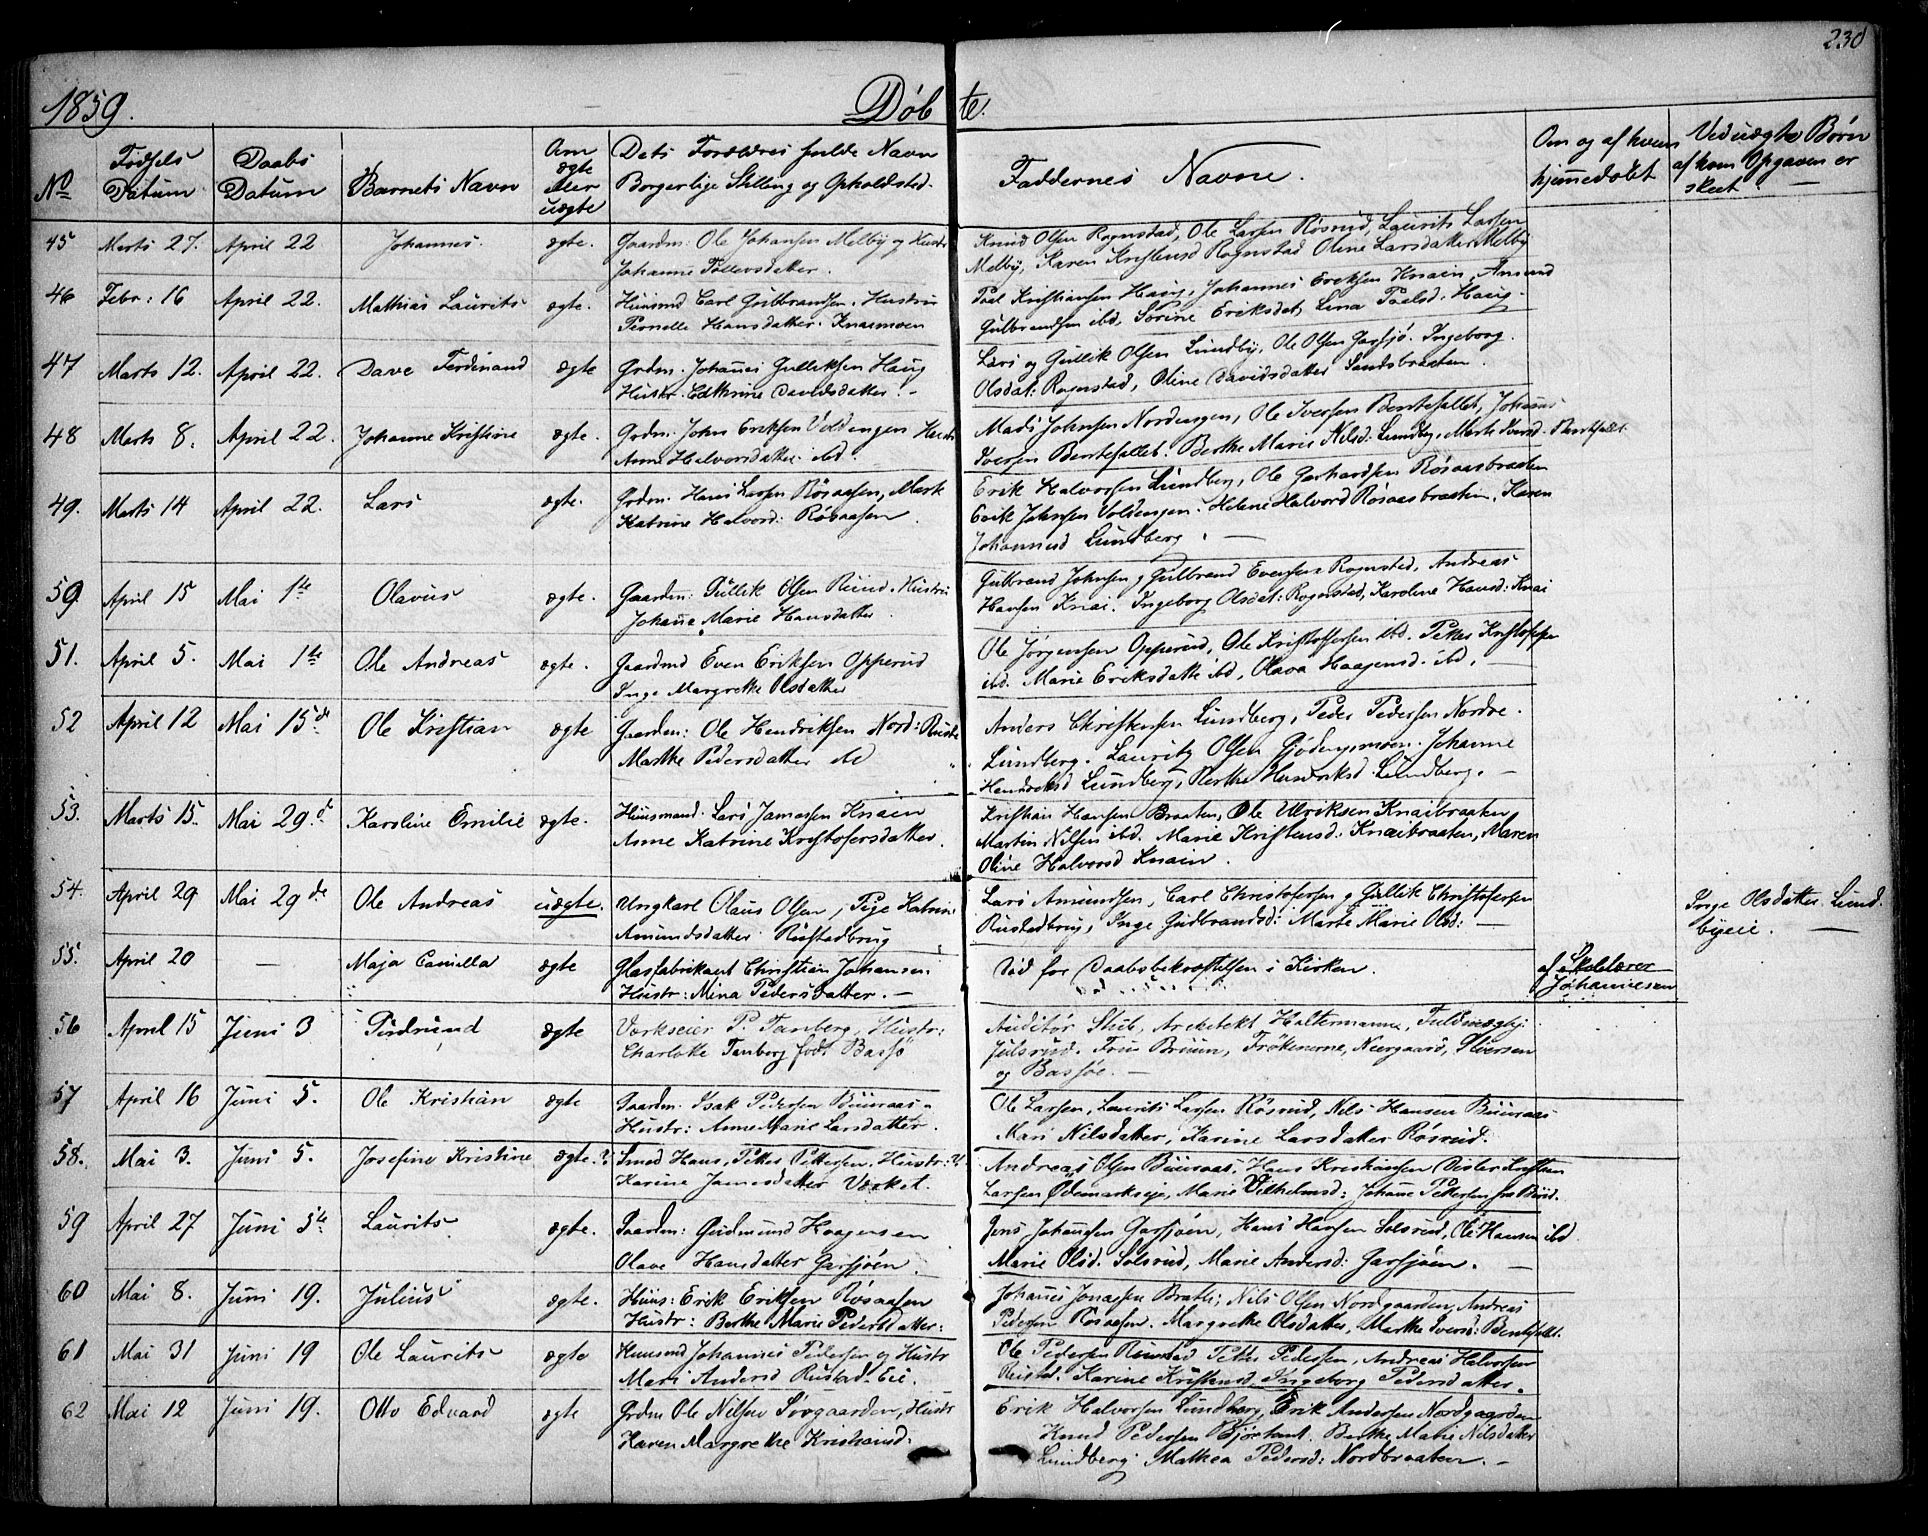 230
1859. Döbte.
No
Födsels Datum
Daabs Datum
Barnets Navn
Om ægte eller uægte
Dets Forældres fulde Navn Borgerlige Stilling og Opholdsted.
Faddernes Navne.
Om og af hvem hjemmedöbt
Ved uægte Börn af hvem Opgaven er skeet
45 Marts 27. April 22 Johannes. ægte. Gaardm: Ole Johansen Melby og Hustr
Johanne Tollevsdatter.
Knud Olsen Rognstad, Ole Larsen Rösrud, Laurits Larsen
Melby, Karen Kristensd Rognstad Oline Larsdatter Melby
46 Febr: 16 April 22. Mathias Laurits ægte. Huusmd Carl Gulbrandsen. Hustru
Pernelle Hansdatter. Knaemoen
Paal Kristiansen Haug, Johannes Eriksen Knain, Amund
Gulbrandsen ibd, Sörine Eriksdat, Lina Paalsd. Haug.
47 Marts 12. April 22. Dave Ferdinand ægte Grdm. Johanes Gulliksen Haug
Hustr. Cathrine Davidsdatter. -
Lars og Gullik Olsen Lundby, Ole Olsen Garsjö. Ingeborg
Olsdat: Rognstad, Oline Davidsdatter Sandsbraaten.
48 Marts 8. April 22. Johanne Kristine ægte. Grdm. John Eriksen Voldengen Hustr
Anne Halvorsdatter ibd.
Mads Johnsen Nordengen, Ole Iversen Bentefallet, Johannes
Iversen Bentefallet. Berthe Marie Nilsd: Lundby. Marte Iversd. Bentefallet.
49. Marts 14 April 22. Lars ægte. Grdm. Hans Larsen Rösaasen,
Katrine Halvord: Rösaasen.
Erik Halvorsen Lundberg, Ole Gerhardsen Rösaasbraaten
Erik Johnsen Voldengen. Helene Halvord Rösaasbraaten, Karen
Johannesd Lundberg. -
50. April 15 Mai 1te Olavus ægte. Gaardm: Gullik Olsen Ruud. Hustru
Johanne Marie Hansdatter.
Gulbrand Johnsen, Gulbrand Evensen Rognstad, Andreas
Hansen Knai. Ingeborg Olsdat: Rognstad, Karoline Hansd: Knai
51. April 5. Mai 1te Ole Andreas ægte. Gaardmd Even Eriksen Opperud
Inge Margrethe Olsdatter
Ole Jörgensen Opperud, Ole Kristoffersen ibd. Petter Kristoffersen
ibd. Marie Eriksdatte ibd, Olava Haagensd. ibd, -
52 April 12 Mai 15de Ole Kristian ægte Gaardm: Ole Hendriksen Nord: Rustbr
Marthe Pedersdatter ibd
Anders Christensen Lundberg, Peder Pedersen Nordre.
Lundberg. Lauritz Olsen Gjödingsmoen. Johanne
Hendriksd Lundberg, Berthe Hendriksd. Lundberg. -
53. Marts 15. Mai 29.d Karoline Emilie ægte. Huusmand. Lars Jamessen Knaien
Anne Katrine Kristofersdatter.
Kristian Hansen Braaten, Ole Ulriksen Knaibraaten
Martin Nilsen ibd. Marie Kristensd: Knaibraaten, Maren
Oline Halvorsd Knain.
54. April 29 Mai 29 de Ole Andreas uægte. Ungkarl Olaus Olsen, Pige Katrine
Amundsdatter Rustadbrug
Lars Amundsen, Carl Christofersen og Gullik Christofersen
Rustadbrug, Inge Gudbrandsd: Marte Marie Olsd: -
Inge Olsdatter Lund.
byeie. -
55. April 20 - Maja Camilla ægte Glasfabrikant Christian Johansen
Hustr: Mina Pedersdatter. -
Död för Daabsbekræftelsen i Kirken.
af Skolelærer
Johannesen
56 April 15 Juni 3 Gudrund ægte Værkseier P. Tanberg, Hustr:
Charlotte Tanberg födt Bassö
Auditör Stub, Arckitekt Haltermanne, Fuldmægtig
Julsrud. Fru Bruun, Frökenerne, Neergaard, Stversen
og Bassöe. -
57 April 16 Juni 5. Ole Kristian ægte Gaardm. Isak Pedersen Buuraas.
Hustr: Anne Marie Larsdatter.
Ole Larsen, Laurits Larsen Rösrud, Nils Hansen Buuraas
Mari Nilsdatter, Karine Larsdatter Rösrud.
58. Mai 3. Juni 5. Josefine Kristine ægte. Smed Hans, Petter Pettersen, Hustr:
Karine Jamesdatter Værket.
Andreas Olsen Buuraas, Hans Kristiansen Kristian
Larsen Ödemarkseje, Marie Vilhelmsd: Johanne Pettersen fra Buud.
59 April 27 Juni 5te Laurits ægte. Gaardm: Gudmund Haagensen
Olave Hansdatter Garsjöen.
Jens Johannsen Garsjöen, Hans Hansen Solsrud, Ole Hansen ibd
Marie Olsd. Solsrud, Marie Andersd: Garsjöen. -
60 Mai 8. Juni 19. Julius ægte. Huus: Erik Eriksen Rösaasen
Hustr: Berthe Marie Pedersdatter:
Johannes Jonassen Brath, Nils Olsen Nordgaarden, Andreas
Pedersen Rösaasen. Margrethe Olsdatter, Marthe Iversd: Bentefallt.
61 Mai 31 Juni 19 Ole Laurits ægte Huusmd Johannes Pedersen og Hustr
Mari Andersd Rustad. Eie.
Ole Pedersen Rustad Petter Pedersen, Andreas Halvorsen
Rustad. Karine Kristensd, Ingeborg Pedersdatter.
62 Mai 12 Juni 19. Otto Edvard ægte Grdm Ole Nilsen Sörgaarden, Hustr
Karen Margrethe Kristiansd.
Erik Halvorsen Lundberg, Erik Andersen Nordgaarden
Knud Pedersen Björtomt. Berthe Marie Nilsdatter
Lundberg. Mathea Pedersd: Nordbraaten. -